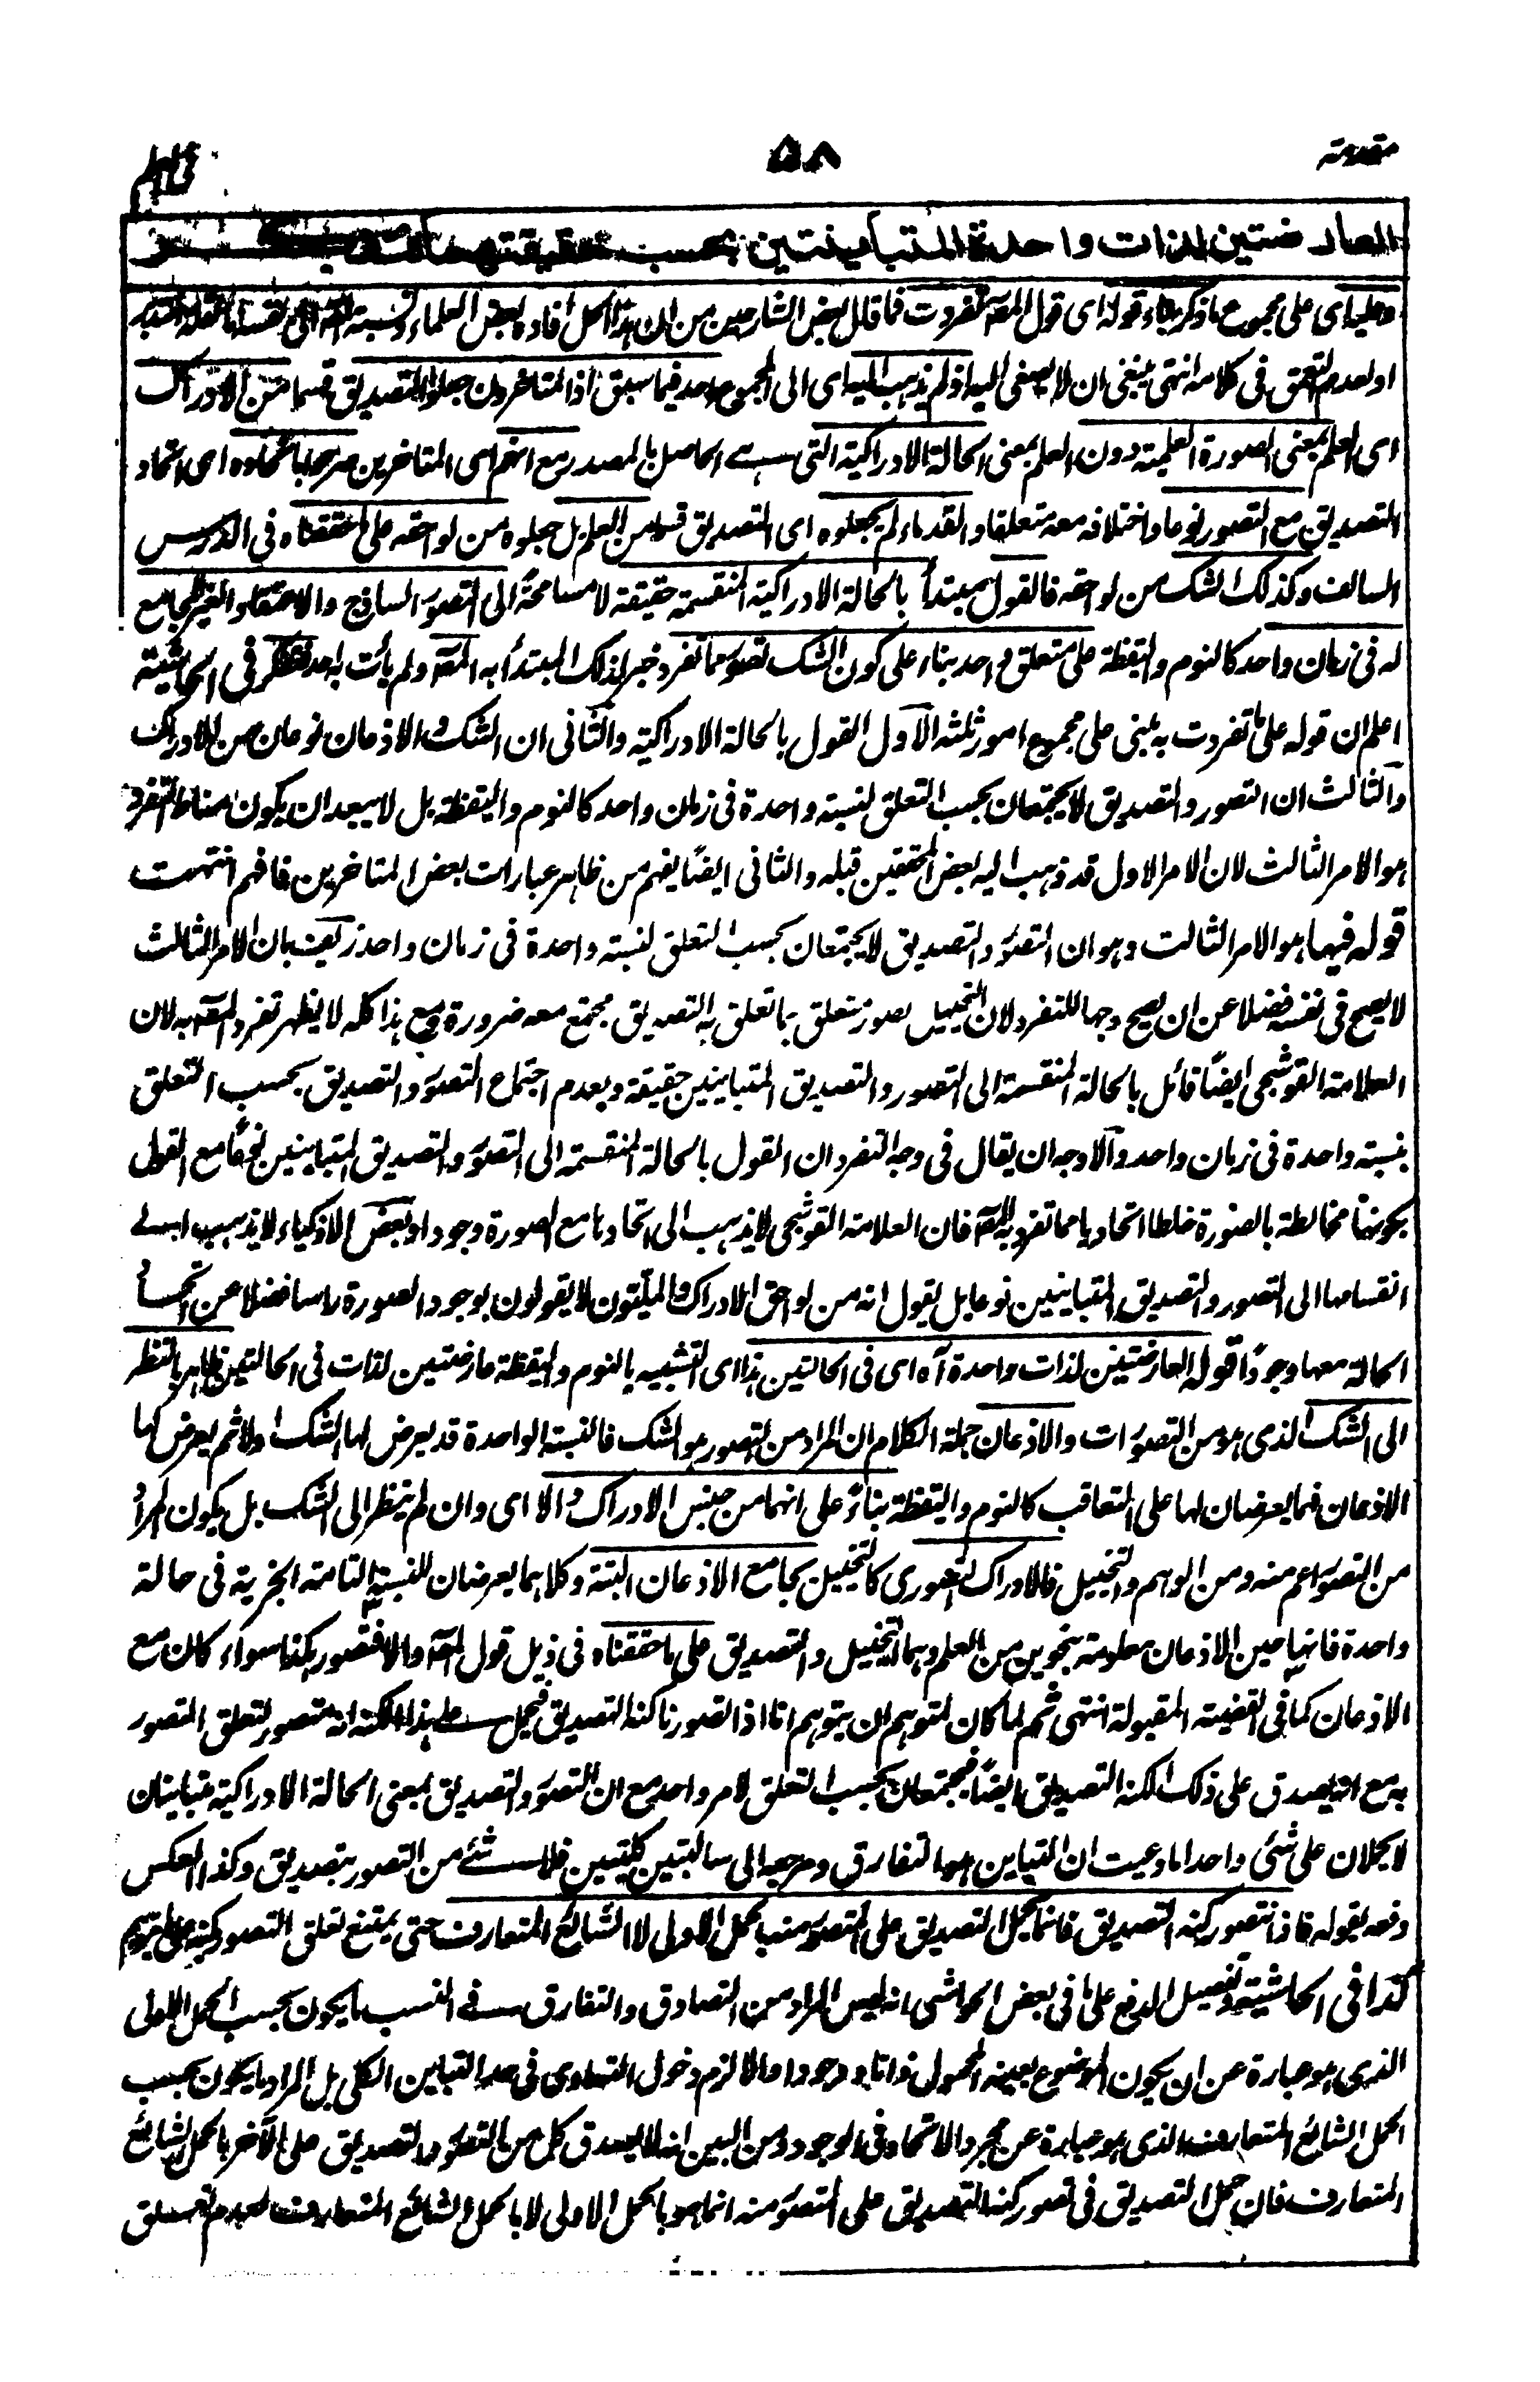 مقدمة ٥٨ فی العلم
العارضتين لذات واحدة المتباينتين بحسب حقيقتهما
وعليه ای علی مجموع ما ذكر بناء قوله ای قول المصـ تفردت فما قال بعض الشارحين من ان هذا الحل افاده بعض العلماء ونسبة المصـ الی نفسه
او لعدم التعمق فی كلامه انتهی ينبغی ان لا يصغی اليه اذ لم يذهب اليه ای الی المجموع احد فيما سبق اذ المتاخرون جعلوا التصديق قسما من الادراك
ای العلم بمعنی الصورة العلمية دون العلم بمعنی الحالة الادراكية التی هی الحاصل بالمصدر مع انهم ای المتاخرين صرحوا باتحاده ای اتحاد
التصديق مع التصور نوعا واختلافه معه متعلقا والقدماء لم يجعلوه ای التصديق قسما من العلم بل جعلوه من لواحقه علی ما حققناه فی الدرس
السالف وكذلك الشك من لواحقه فالقول مبتدأ بالحالة الادراكية المنقسمة حقيقة لا مسامحة الی التصور الساذج والاعتقاد الغير المجامع
له فی زمان واحد كالنوم واليقظة علی متعلق واحد بناء علی كون الشك تصورا مما تفرد خبر لذلك المبتدأ به المصـ ولم يأت به احد فی الحاشية
اعلم ان قوله علی ما تفردت به مبنی علی مجموع امور ثلثه الاول القول بالحالة الادراكية والثانی ان الشك والاذعان نوعان من الادراك
والثالث ان التصور والتصديق لا يجتمعان بحسب التعلق لنسبة واحدة فی زمان واحد كالنوم واليقظة بل لا يبعد ان يكون مناط التفرد
هو الامر الثالث لان الامر الاول قد ذهب اليه بعض المحققين قبله والثانی ايضا يفهم من ظاهر عبارات بعض المتاخرين فافهم انتهت
قوله فيها هو الامر الثالث وهو ان التصور والتصديق لا يجتمعان بحسب التعلق لنسبة واحدة فی زمان واحد زيف بان الامر الثالث
لا يصح فی نفسه فضلا عن ان يصح وجها للتفرد لان التخييل تصور متعلق بما تعلق به التصديق مجتمع معه ضرورة ومع هذا كله لا يظهر تفرد المصـ به لان
العلامة القوشجی ايضا قائل بالحالة المنقسمة الی التصور والتصديق المتباينين حقيقة وبعدم اجتماع التصور والتصديق بحسب التعلق
بنسبة واحدة فی زمان واحد والاوجه ان يقال فی وجه التفرد ان القول بالحالة المنقسمة الی التصور والتصديق المتباينين نوعا مع القول
بكونها مخالطة بالصورة خلطا اتحاديا مما تفرد به المصـ فان العلامة القوشجی لا يذهب الی اتحادها مع الصورة وجودا وبعض الاذكياء لا يذهب الی
انقسامها الی التصور والتصديق المتباينين نوعا بل يقول انه من لواحق الادراك والمليّون لا يقولون بوجود الصورة راسا فضلا عن اتحاد
الحالة معها وجودا قوله العارضتين لذات واحدة آه ای فی الحالتين هذا ای التشبيه بالنوم واليقظة عارضتين لذات فی الحالتين ظاهر بالنظر
الی الشك الذی هو من التصورات والاذعان جملة الكلام ان المراد من التصور هو الشك فالنسبة الواحدة قد يعرض لها الشك اولا ثم يعرض لها
الاذعان فهما يعرضان لها علی التعاقب كالنوم واليقظة بناء علی انهما من جنس الادراك والا ای وان لم ينظر الی الشك بل يكون المراد
من التصور اعم منه ومن الوهم والتخييل فالادراك التصوری كالتخييل يجامع الاذعان البتة وكلاهما يعرضان للنسبة التامة الخبرية فی حالة
واحدة فانها حين الاذعان معلومة بنحوين من العلم وهما التخييل والتصديق علی ما حققناه فی ذيل قول المصـ والا فتصور هكذا سواء كان مع
الاذعان كما فی القضية المقبولة انتهی ثم لما كان لمتوهم ان يتوهم انا اذا تصورنا كنه التصديق فيحمل علی هذا الكنه انه تصور لتعلق التصور
به مع انه يصدق علی ذلك الكنه التصديق ايضا فيجتمعان بحسب التعلق لامر واحد مع ان التصور والتصديق بمعنی الحالة الادراكية متباينان
لا يحملان علی شئی واحد اما وعيت ان التباين هو التفارق ومرجعه الی سالبتين كليتين فلا شئے من التصور بتصديق وكذا العكس
دفعه بقوله فاذا نتصور كنه التصديق فانما يحمل التصديق علی المتصور منه بالحمل الاولی لا الشائع المتعارف حتی يمتنع تعلق التصور بكنهه
كذا فی الحاشية وتفصيل الدفع علی ما فی بعض الحواشی انه ليس المراد من التصادق والتفارق فی النسب ما يكون بحسب الحمل الاولی
الذی هو عبارة عن ان يكون الموضوع بعينه المحمول ذاتا ووجودا والا لزم دخول التساوی فی حد التباين الكلی بل المراد ما يكون بحسب
الحمل الشائع المتعارف الذی هو عبارة عن مجرد الاتحاد فی الوجود ومن البين انه لا يصدق كل من التصور والتصديق علی الآخر بالحمل الشائع
المتعارف فان حمل التصديق فی تصور كنه التصديق علی المتصور منه انما هو بالحمل الاولی لا بالحمل الشائع المتعارف لعدم تعلق